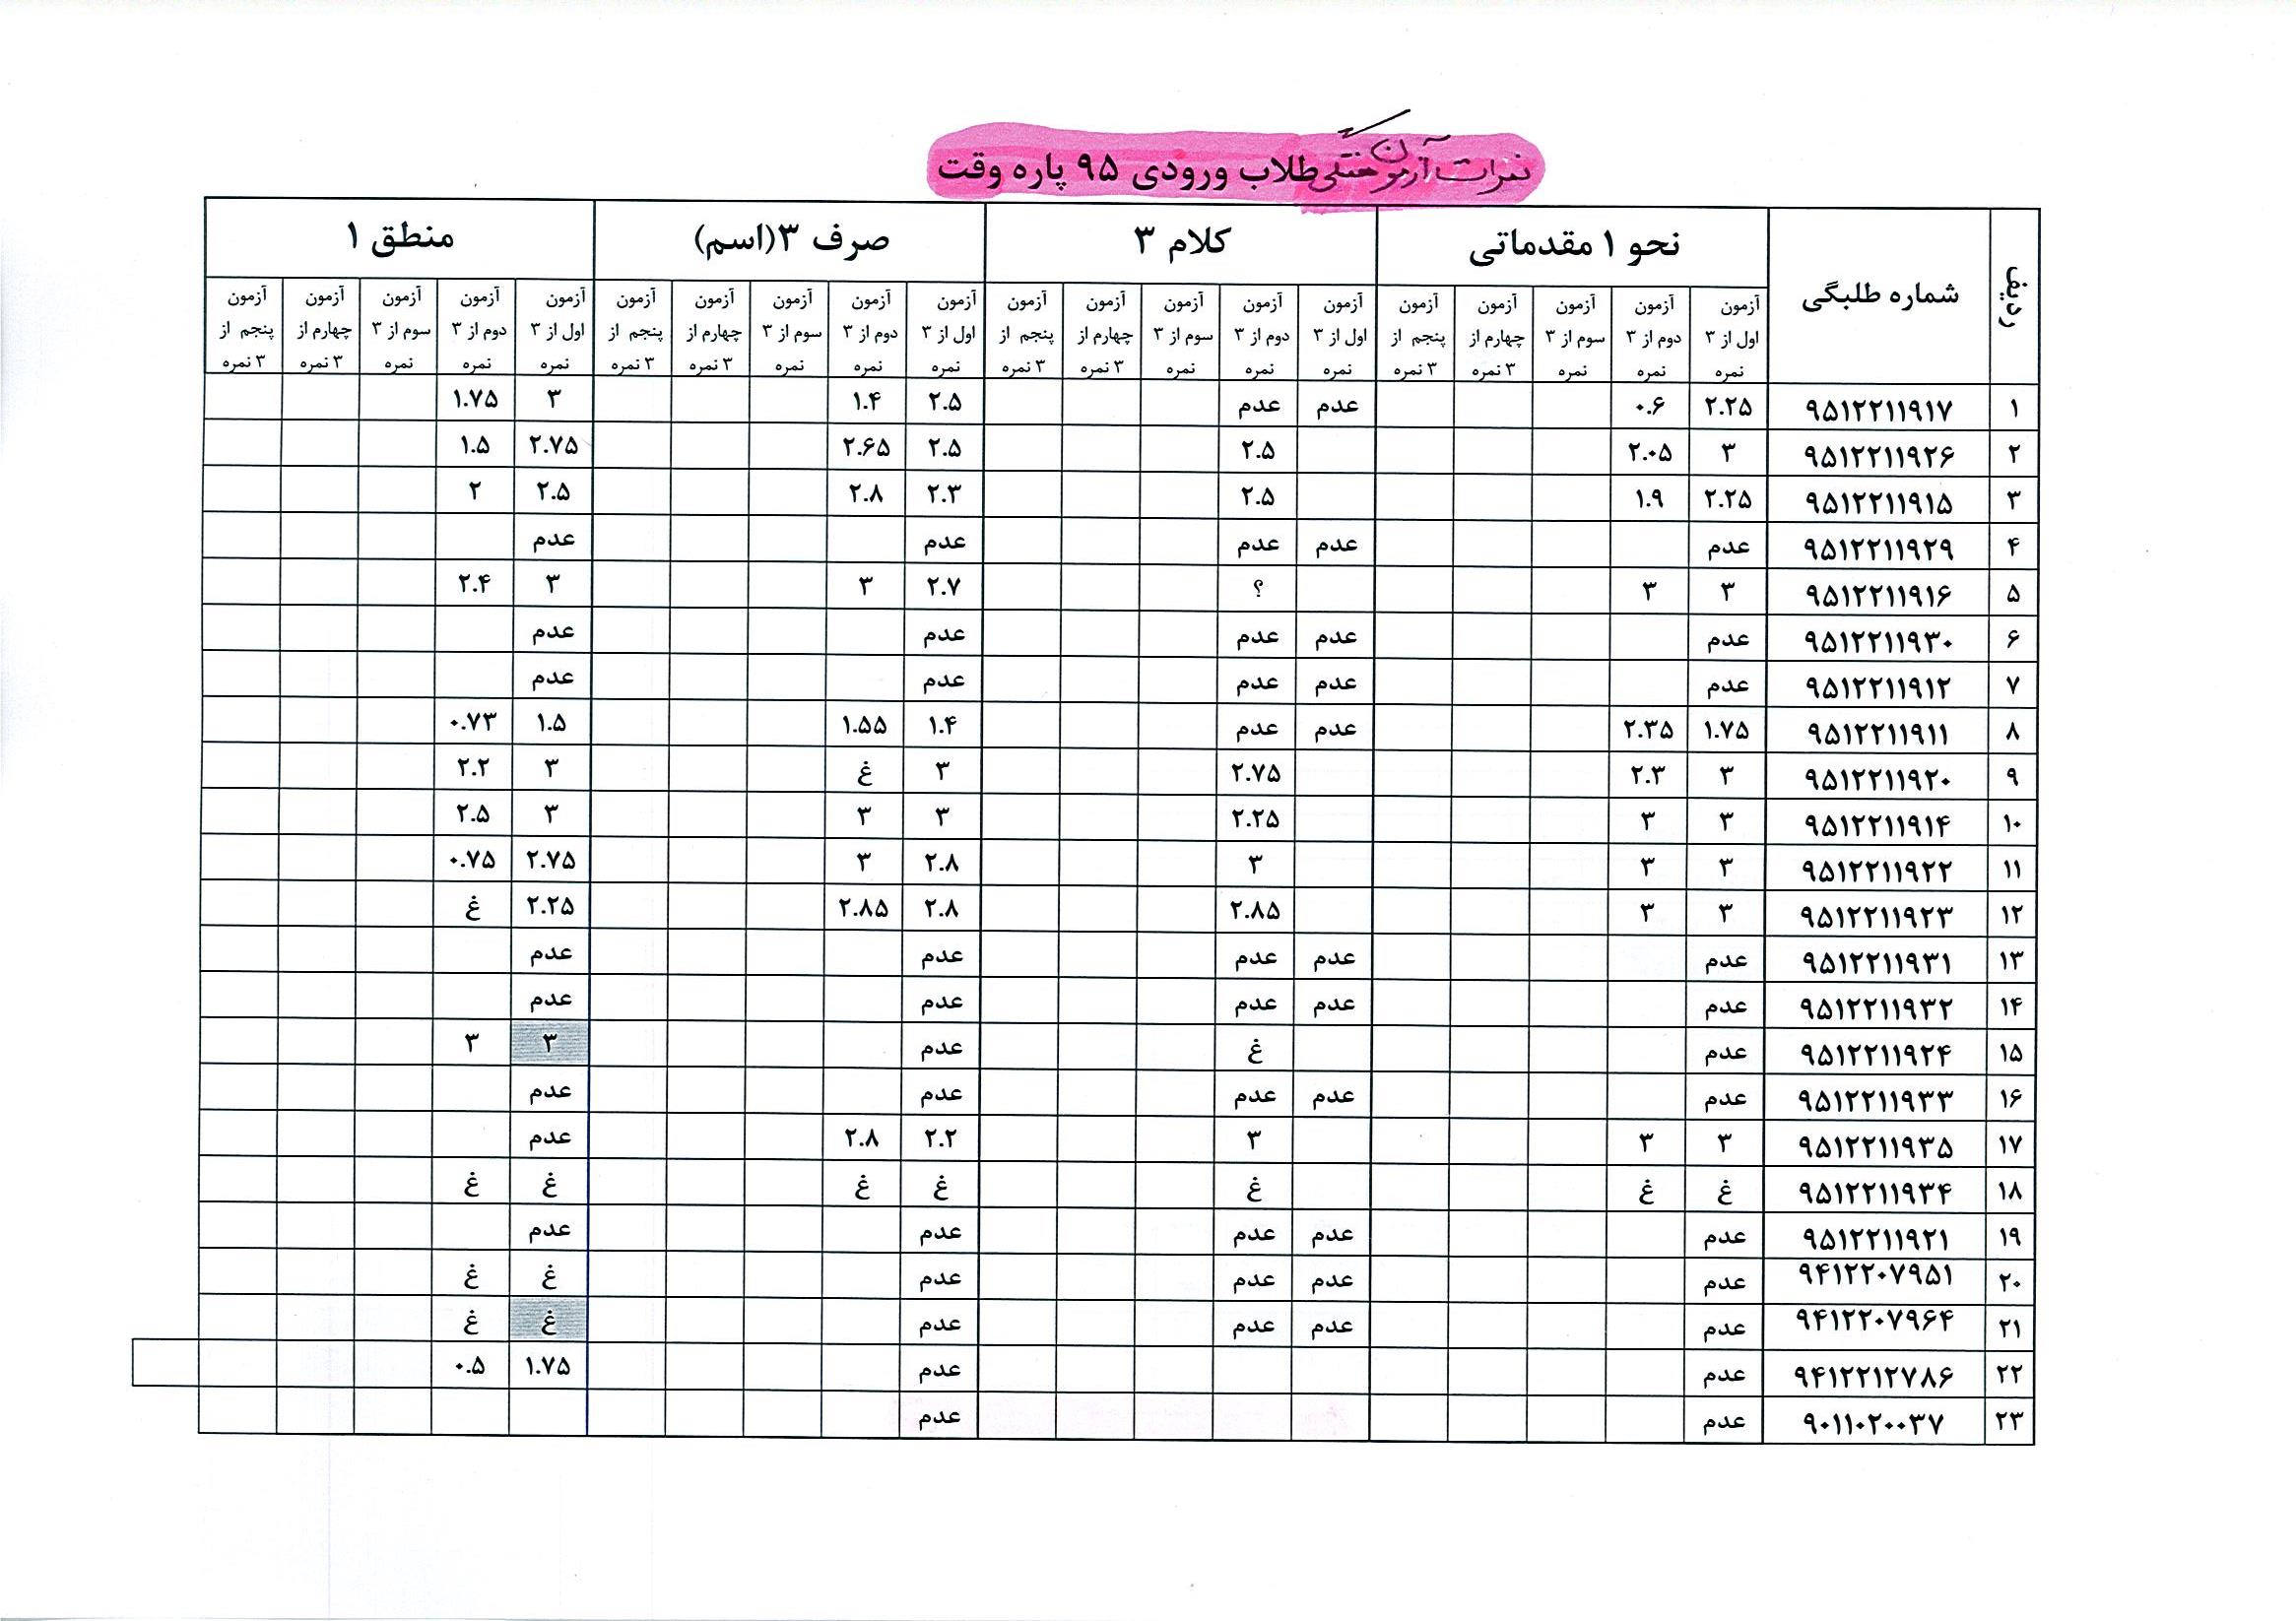 نمرات آزمون هفتگی طلاب ورودی ۹۵ پاره وقت
ردیف شماره طلبگی نحو ۱ مقدماتی کلام ۳ صرف ۳(اسم) منطق ۱
آزمون اول از ۳ نمره آزمون دوم از ۳ نمره آزمون سوم از ۳ نمره آزمون چهارم از ۳ نمره آزمون پنجم از ۳ نمره آزمون اول از ۳ نمره آزمون دوم از ۳ نمره آزمون سوم از ۳ نمره آزمون چهارم از ۳ نمره آزمون پنجم از ۳ نمره آزمون اول از ۳ نمره آزمون دوم از ۳ نمره آزمون سوم از ۳ نمره آزمون چهارم از ۳ نمره آزمون پنجم از ۳ نمره آزمون اول از ۳ نمره آزمون دوم از ۳ نمره آزمون سوم از ۳ نمره آزمون چهارم از ۳ نمره آزمون پنجم از ۳ نمره
۱ ۹۵۱۲۲۱۱۹۱۷ ۲.۲۵ ۰.۶ عدم عدم ۲.۵ ۱.۴ ۳ ۱.۷۵
۲ ۹۵۱۲۲۱۱۹۲۶ ۳ ۲.۰۵ ۲.۵ ۲.۵ ۲.۶۵ ۲.۷۵ ۱.۵
۳ ۹۵۱۲۲۱۱۹۱۵ ۲.۲۵ ۱.۹ ۲.۵ ۲.۳ ۲.۸ ۲.۵ ۲
۴ ۹۵۱۲۲۱۱۹۲۹ عدم عدم عدم عدم عدم
۵ ۹۵۱۲۲۱۱۹۱۶ ۳ ۳ ؟ ۲.۷ ۳ ۳ ۲.۴
۶ ۹۵۱۲۲۱۱۹۳۰ عدم عدم عدم عدم عدم
۷ ۹۵۱۲۲۱۱۹۱۲ عدم عدم عدم عدم عدم
۸ ۹۵۱۲۲۱۱۹۱۱ ۱.۷۵ ۲.۳۵ عدم عدم ۱.۴ ۱.۵۵ ۱.۵ ۰.۷۳
۹ ۹۵۱۲۲۱۱۹۲۰ ۳ ۲.۳ ۲.۷۵ ۳ غ ۳ ۲.۲
۱۰ ۹۵۱۲۲۱۱۹۱۴ ۳ ۳ ۲.۲۵ ۳ ۳ ۳ ۲.۵
۱۱ ۹۵۱۲۲۱۱۹۲۲ ۳ ۳ ۳ ۲.۸ ۳ ۲.۷۵ ۰.۷۵
۱۲ ۹۵۱۲۲۱۱۹۲۳ ۳ ۳ ۲.۸۵ ۲.۸ ۲.۸۵ ۲.۲۵ غ
۱۳ ۹۵۱۲۲۱۱۹۳۱ عدم عدم عدم عدم عدم
۱۴ ۹۵۱۲۲۱۱۹۳۲ عدم عدم عدم عدم عدم
۱۵ ۹۵۱۲۲۱۱۹۲۴ عدم غ عدم ۳ ۳
۱۶ ۹۵۱۲۲۱۱۹۳۳ عدم عدم عدم عدم عدم
۱۷ ۹۵۱۲۲۱۱۹۳۵ ۳ ۳ ۳ ۲.۲ ۲.۸ عدم
۱۸ ۹۵۱۲۲۱۱۹۳۴ غ غ غ غ غ غ غ
۱۹ ۹۵۱۲۲۱۱۹۲۱ عدم عدم عدم عدم عدم
۲۰ ۹۴۱۲۲۰۷۹۵۱ عدم عدم عدم عدم غ غ
۲۱ ۹۴۱۲۲۰۷۹۶۴ عدم عدم عدم عدم غ غ
۲۲ ۹۴۱۲۲۱۲۷۸۶ عدم عدم ۱.۷۵ ۰.۵
۲۳ ۹۰۱۱۰۲۰۰۳۷ عدم عدم